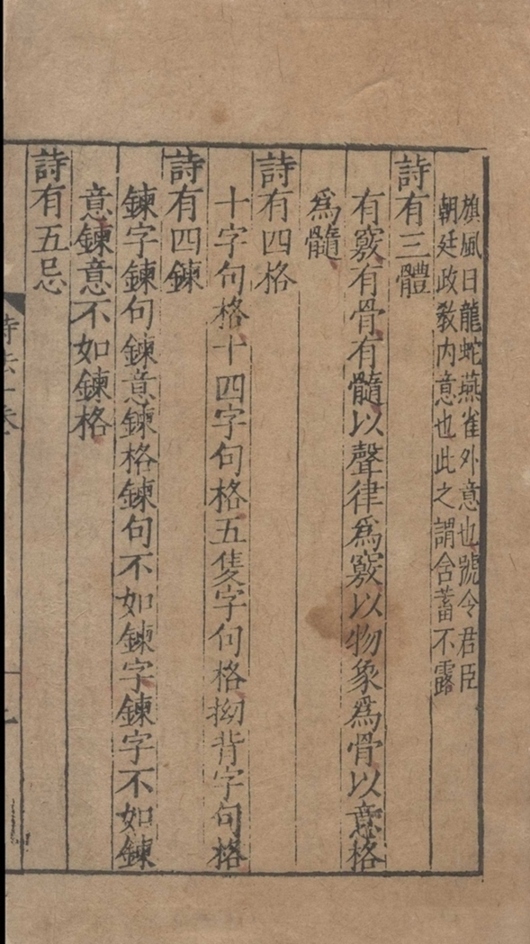 旗風日龍蛇燕雀外意也號令君臣
朝廷政教內意也此之謂含蓄不露
詩有三體
有竅有骨有髓以聲律爲竅以物象爲骨以意格
爲髓
詩有四格
十字句格十四字句格五隻字句格拗背字句格
詩有四鍊
鍊字鍊句鍊意鍊格鍊句不如鍊字鍊字不如鍊
意鍊意不如鍊格
詩有五忌